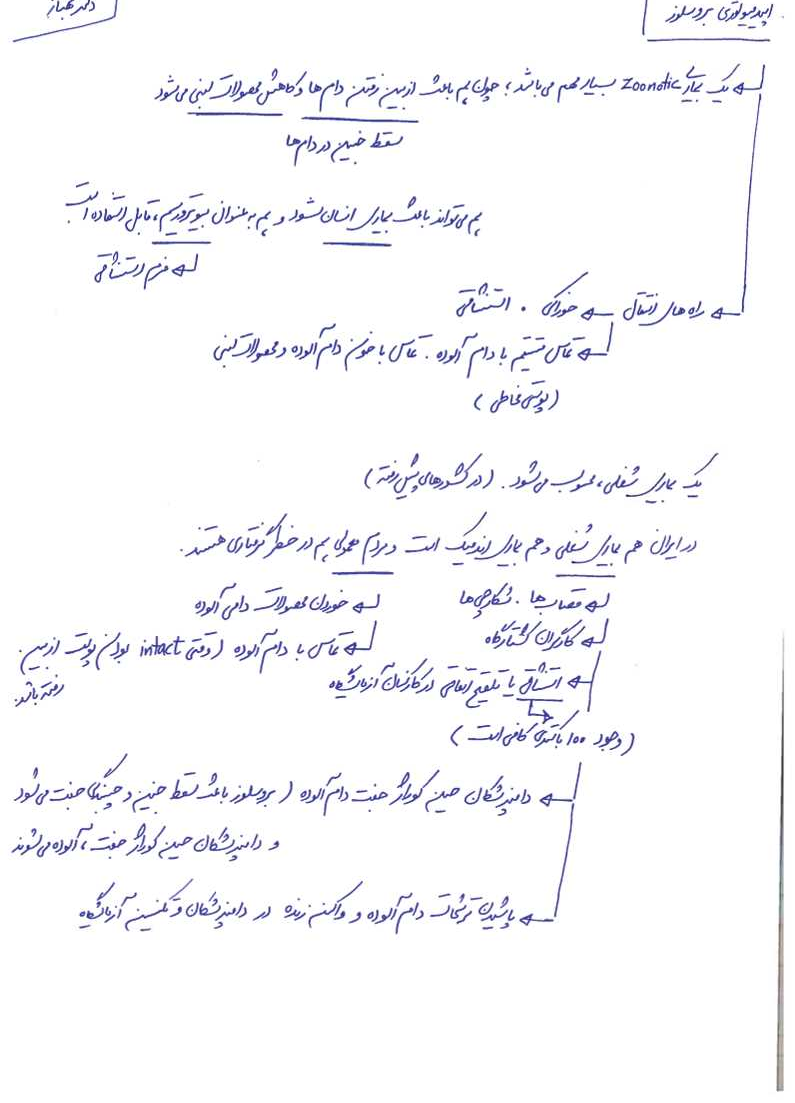 اپیدمیولوژی بروسلوز
دکتر
یک بیماری Zoonotic بسیار مهم می باشد؛ چون هم باعث ازبین رفتن دام ها و کاهش محصولات لبنی می شود
سقط جنین در دام ها
هم می تواند باعث بیماری انسان شود و هم به عنوان بیوتروریسم، قابل استفاده است
فرم استنشاقی
راه های انتقال خوراکی . استنشاقی
تماس مستقیم با دام آلوده . تماس با خون دام آلوده و محصولات لبنی
(پوستی مخاطی)
یک بیماری شغلی، محسوب می شود. (در کشورهای پیش رفته)
در ایران هم بیماری شغلی و هم بیماری اندمیک است و مردم معمولی هم در خطر گرفتاری هستند.
قصاب ها . شکارچی ها
خوردن محصولات دامی آلوده
کارگران کشتارگاه
تماس با دام آلوده (وقتی intact بودن پوست ازبین
رفته باشد.
استنشاق یا تلقیح اتفاقی در کارکنان آزمایشگاه
(وجود ۱۰۰ باکتری کافی است)
دامپزشکان حین کورتاژ جفت دام آلوده (بروسلوز باعث سقط جنین و چسبندگی جفت می شود
و دامپزشکان حین کورتاژ جفت، آلوده می شوند
پاشیدن ترشحات دام آلوده و واکسن زنده در دامپزشکان و تکنسین آزمایشگاه